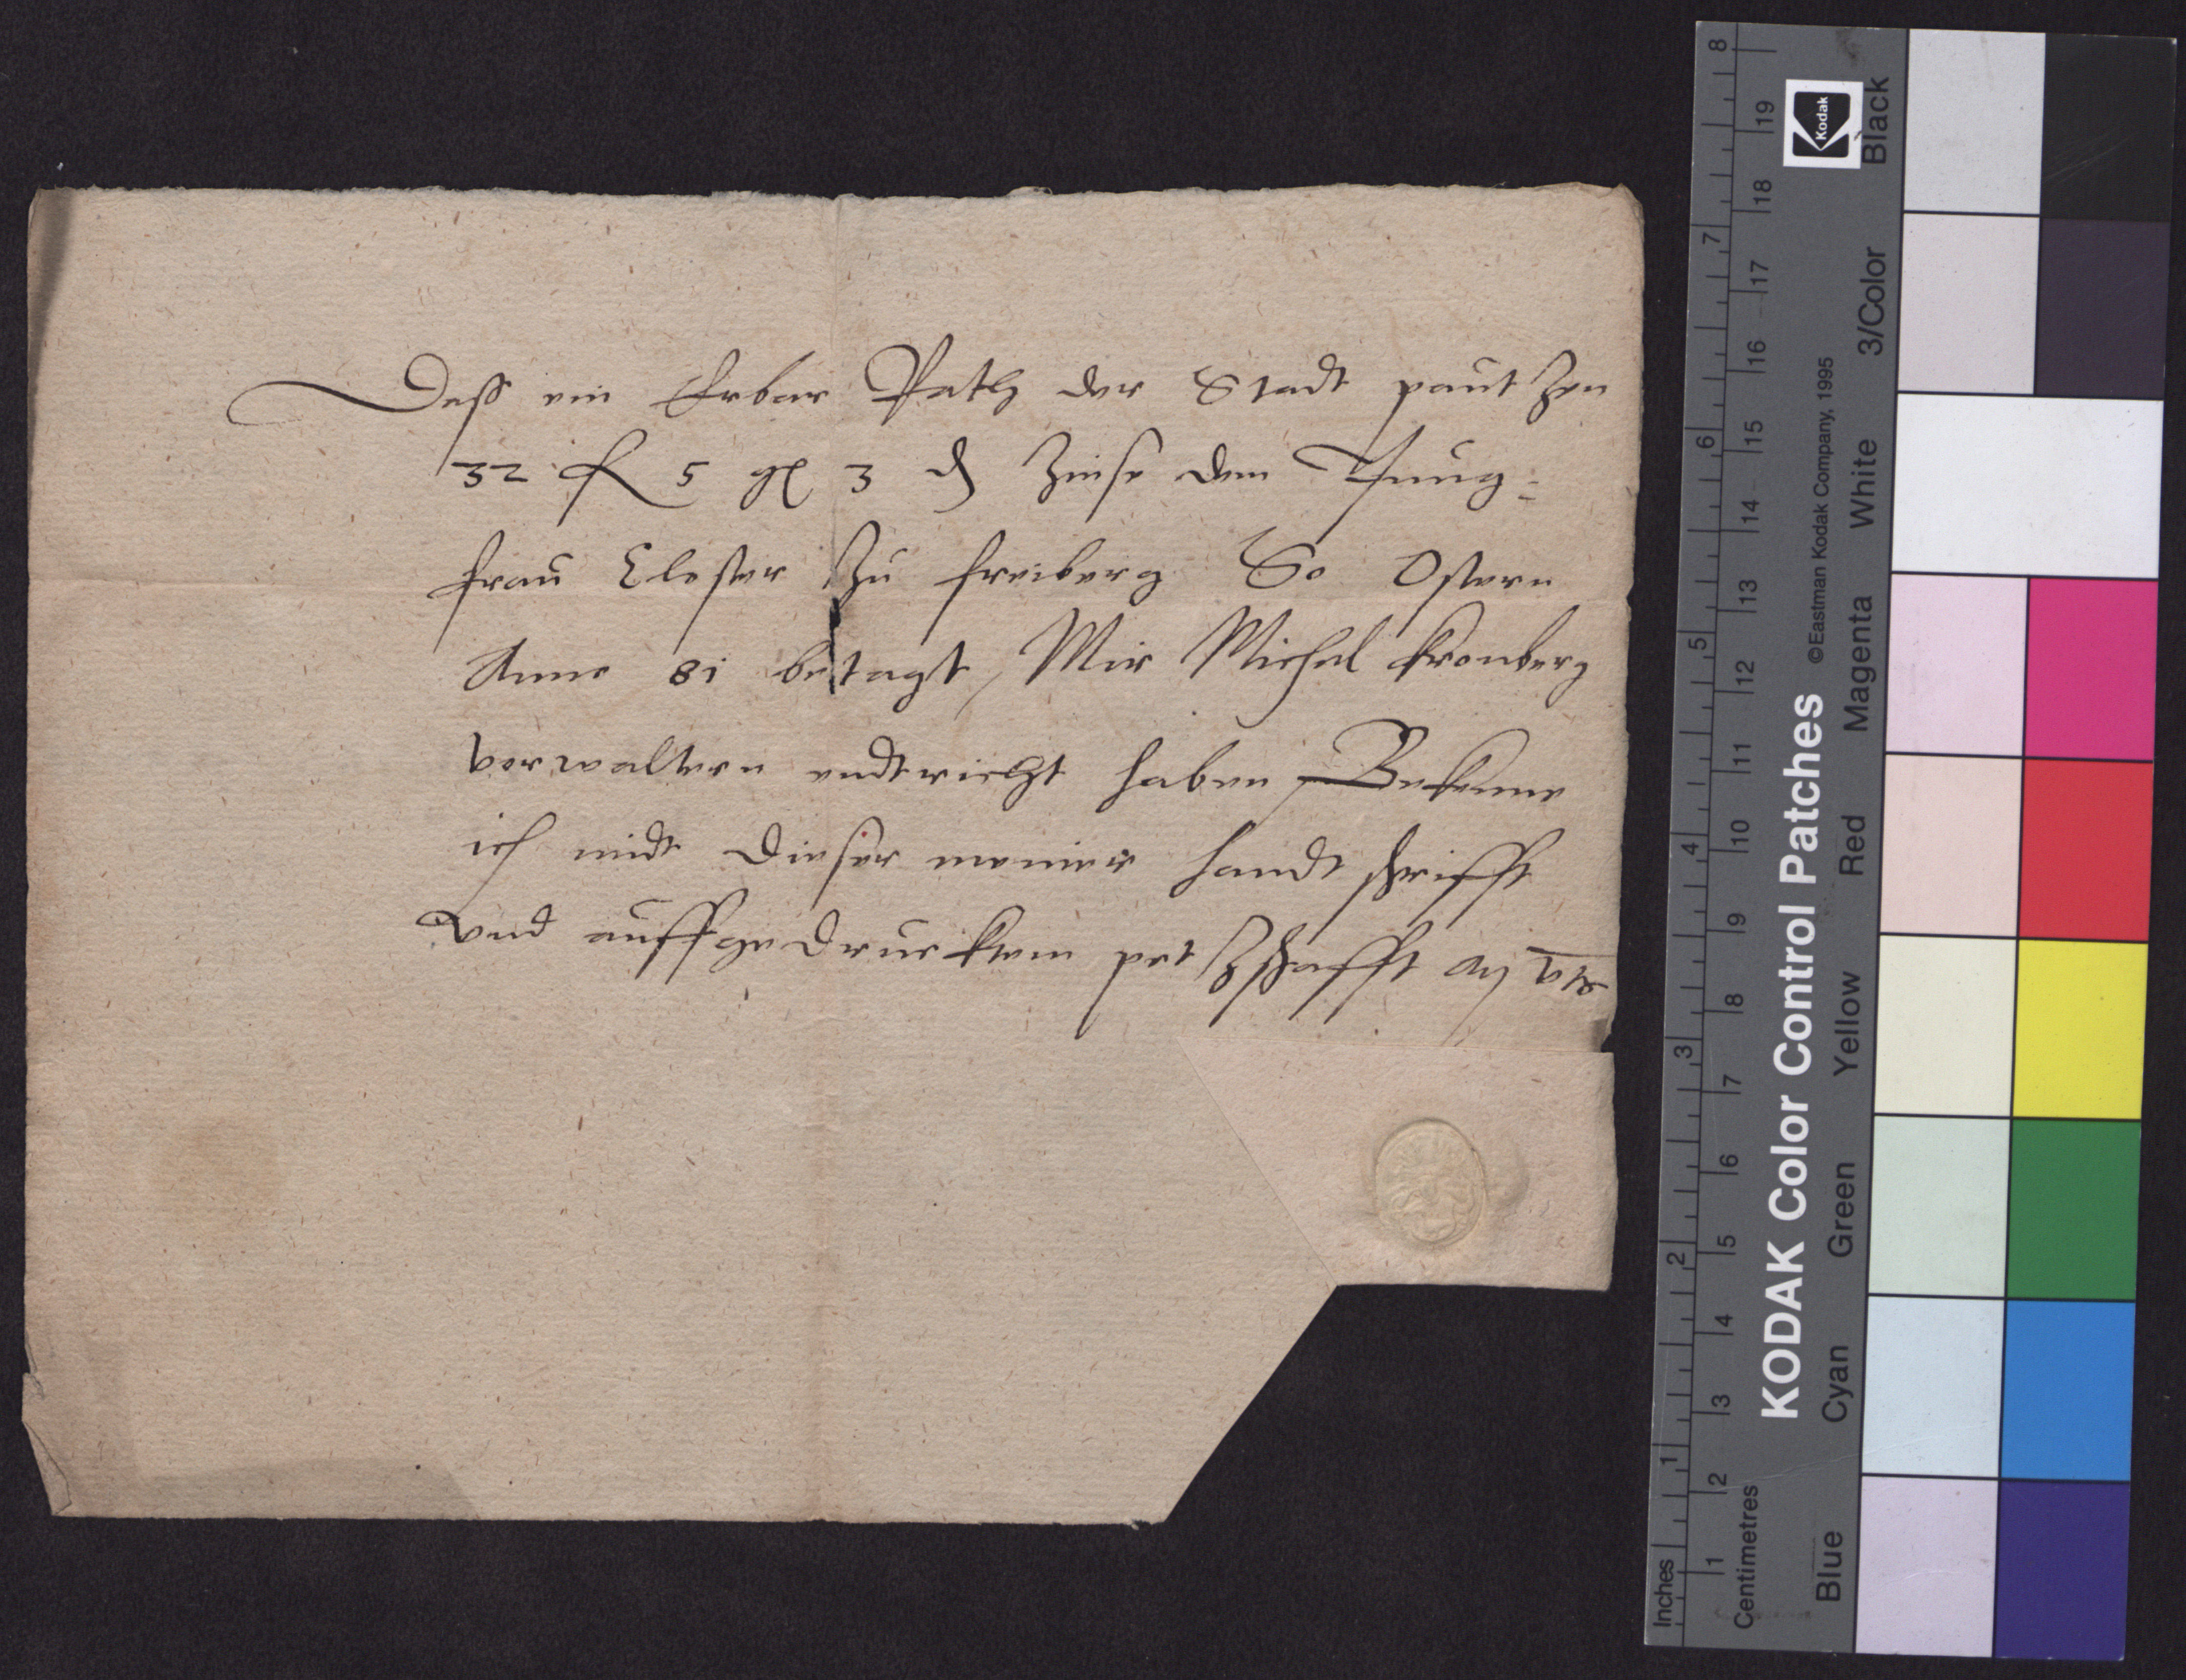 Dass ein Erbar Rath der Stadt pautzen
32 fl 5 gl 3 d Zinse dem Jung=
frau Closter Zu freiberg So Ostern
Anno 81 betagt, Mir Michel kronberg
verwaltern endtricht haben, Bekenne
ich midt dieser meiner handt schrifft
vnd auffgedrucktem petzschafft
8
7
6
5
4
3
2
1
Inches
19
18
17
16
15
14
13
12
11
10
9
8
7
6
5
4
3
2
1
Centimetres
KODAK Color Control Patches ©Eastman Kodak Company, 1995
Kodak
Blue Cyan Green Yellow Red Magenta White 3/Color Black